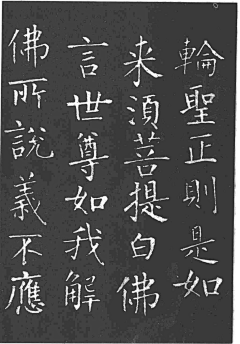 輪聖正則是如
来須菩提白佛
言世尊如我解
佛所說義不應